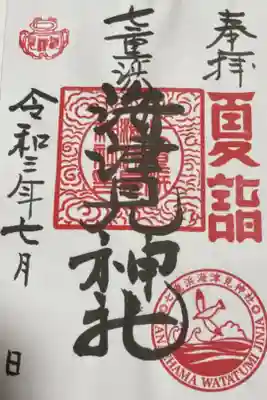 奉拝
夏詣
七重浜
海津見神社
令和三年七月
日
七重浜海津見神社
NANAEHAMA WATATUMI JINJA